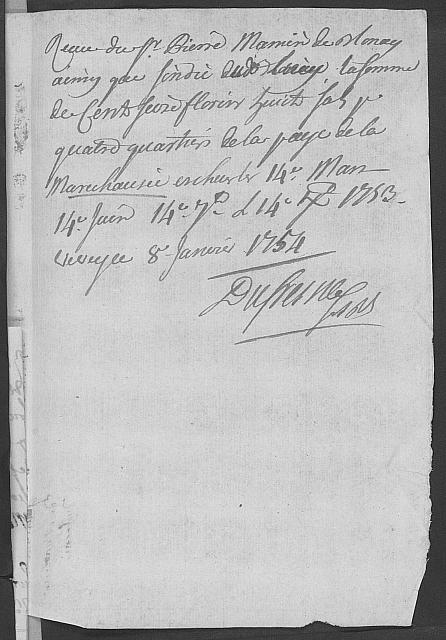 Receu du Sr. Pierre Mamin de Blonay
ainsy que sindic dudt Lieu la somme
de Cent seize florins huit sols pr
quatre quartiers de la paye de la
Marechausée eschus les 14e. Mars
14e. Juin 14e. 7bre & 14e Xbre 1753.
Vevey ce 8e. Janvier 1754
Dufresne